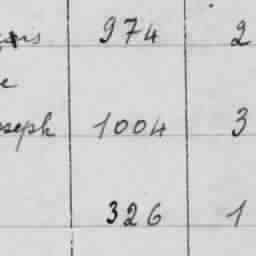 974 2
e
oseph 1004 3
326 1